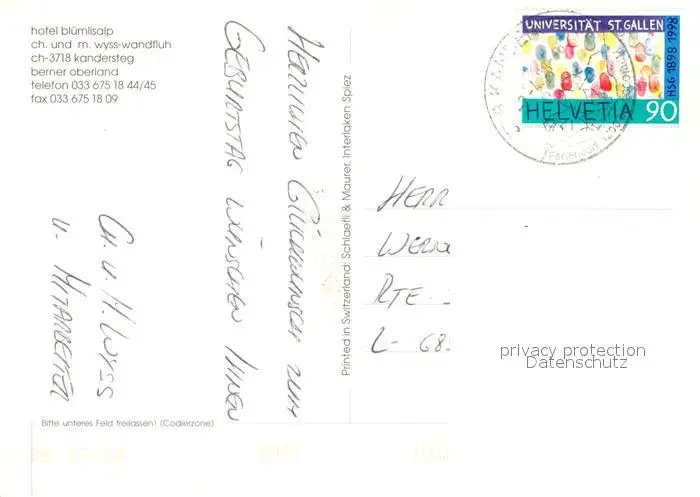 hotel blümlisalp
ch. und m. wyss-wandfluh
ch-3718 kandersteg
berner oberland
telefon 033 675 18 44/45
fax 033 675 18 09
Herzlichen Glückwunsch zum
Geburtstag wünschen Ihnen
Ch. u. M. Wyss
u. Mitarbeiter
Bitte unteres Feld freilassen! (Codierzone)
Printed in Switzerland: Schlaefli & Maurer, Interlaken-Spiez
UNIVERSITÄT ST. GALLEN
HSG 1898-1998
HELVETIA 90
Herr
Rte.
L-
privacy protection
Datenschutz